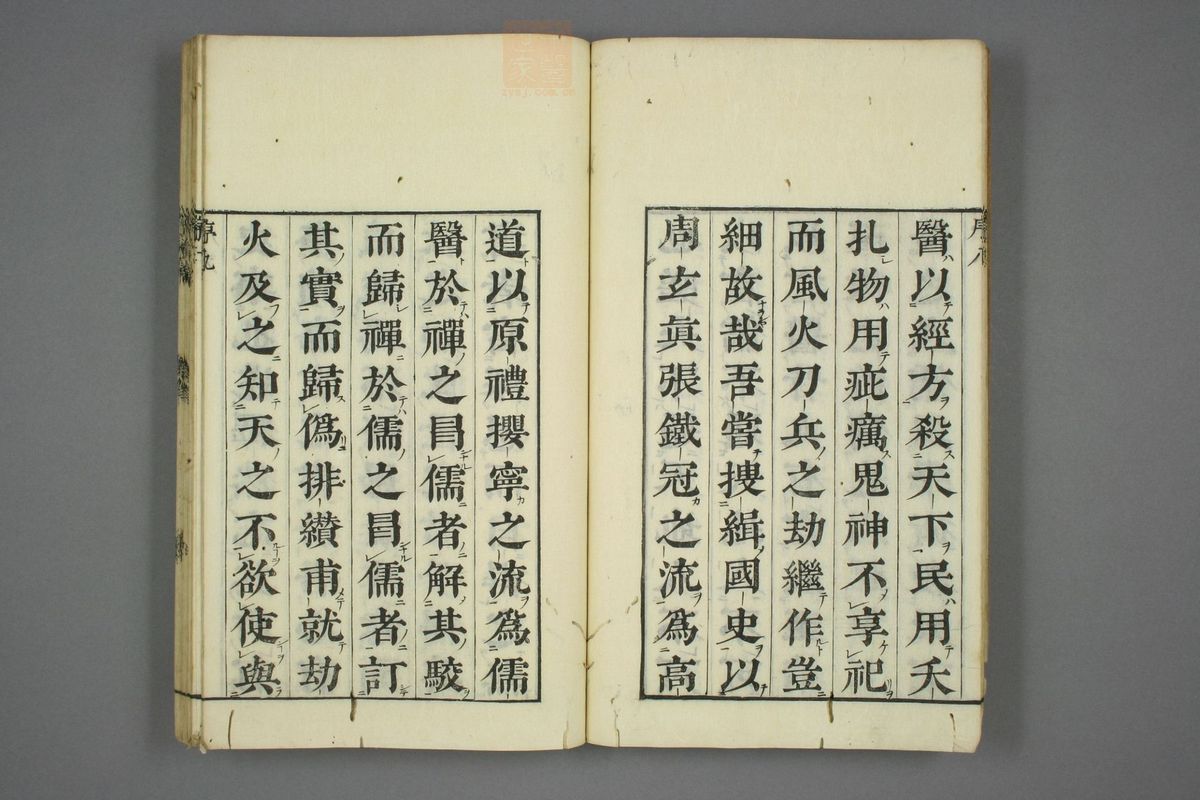 醫以經方殺天下民用夭
扎物用疵癘鬼神不享祀
而風火刀兵之劫繼作豈
細故哉吾嘗搜緝國史以
周玄真張鐵冠之流爲高
道以原禮攖寧之流爲儒
醫於禪之冒儒者解其駮
而歸禪於儒之冒儒者訂
其實而歸僞排纘甫就劫
火及之知天之不欲使與
zysj.com.cn